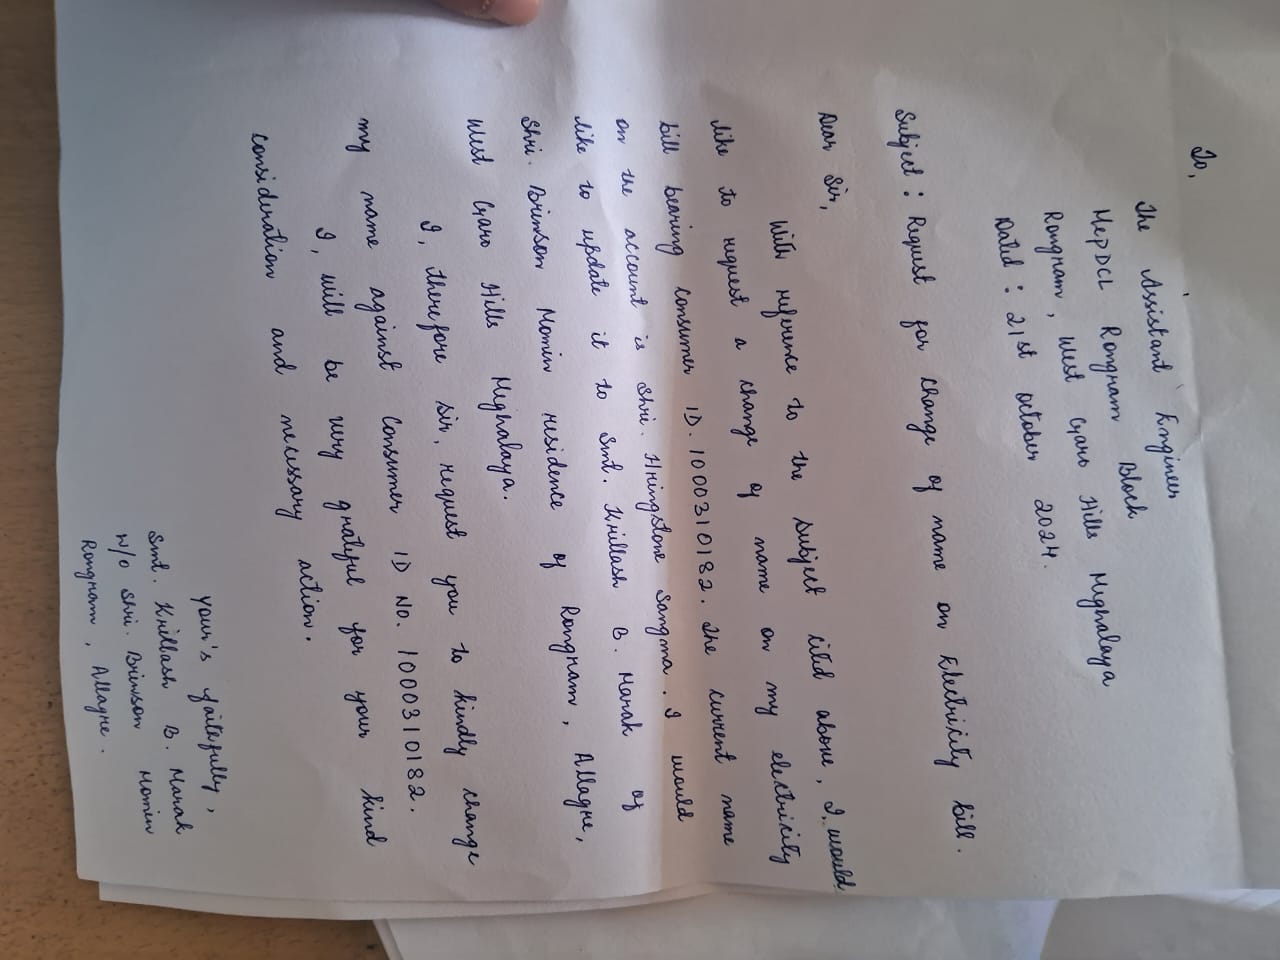 To,
The Assistant Engineer
MePDCL Rongram Block
Rongram, West Garo Hills Meghalaya
Dated : 21st october 2024.
Subject : Request for change of name on Electricity bill.
Dear Sir,
With reference to the subject cited above, I, would
like to request a change of name on my electricity
bill bearing consumer ID. 100310182. The current name
on the account is Shri. Hringstone Sangma. I would
like to update it to Smt. Krillash B. Marak of
Shri. Brinson Momin residence of Rongram, Allagre,
West Garo Hills Meghalaya.
I, therefore sir, request you to kindly change
my name against Consumer ID No. 100310182.
I, will be very grateful for your kind
consideration and necessary action.
Your's faitefully,
Smt. Krillash B. Marak
W/o Shri. Brinson Momin
Rongram, Allagre.